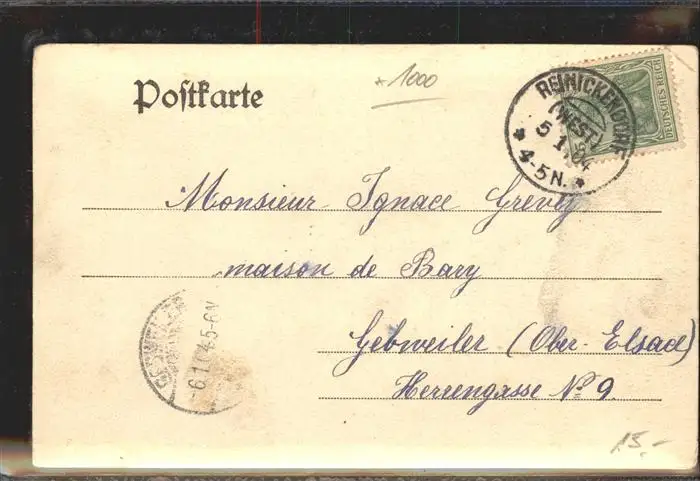 Postkarte
*1000
REINICKENDORF
(WEST)
5 1 04
* 4-5 N. *
DEUTSCHES REICH
5
Monsieur Ignace Grevey
maison de Bary
Gebweiler (Ober-Elsace)
Herrengasse No 9.
-6.1.04.5-6N
15.-